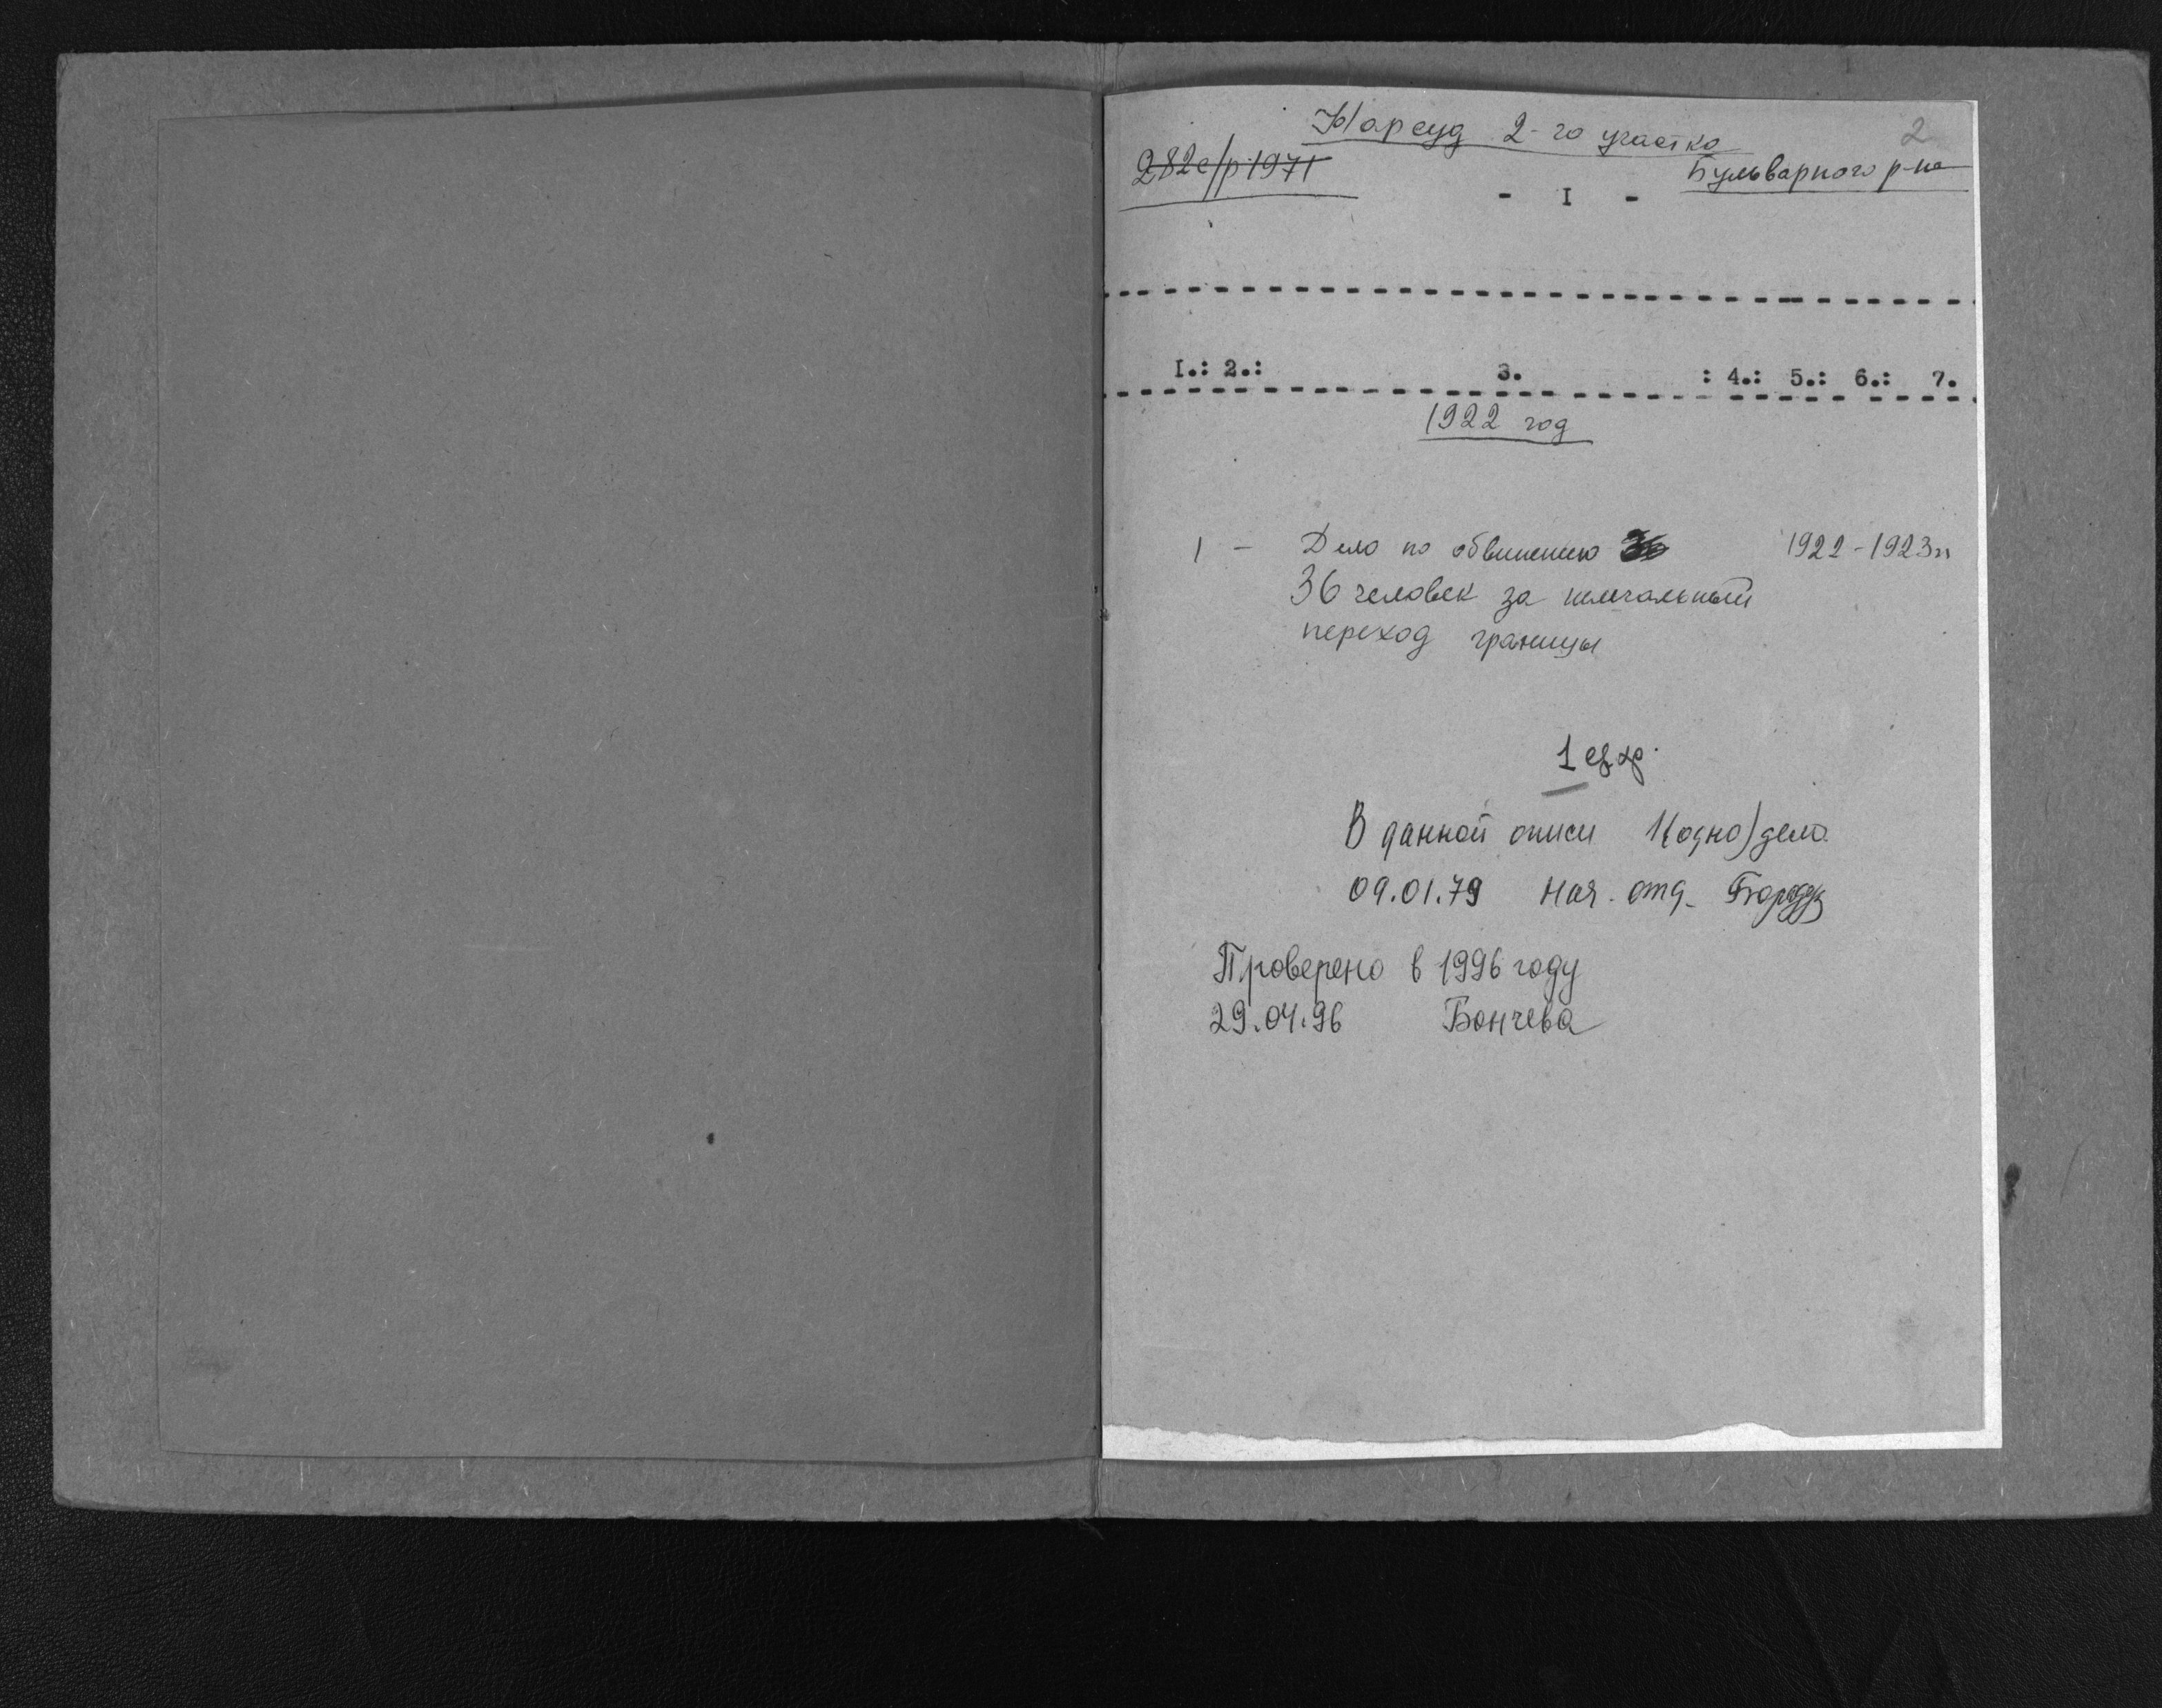 2
Нарсуд 2-го участка
Бульварного р-на
282с/р-1971
- I -
I.: 2.: 3. : 4.: 5.: 6.: 7.
1922 год
1 - Дело по обвинению 36 1922-1923гг
36 человек за нелегальный
переход границы
1 ед. хр.
В данной описи 1(одно) дело
09.01.79 Нач. отд.
Проверено в 1996 году
29.04.96 Бончева